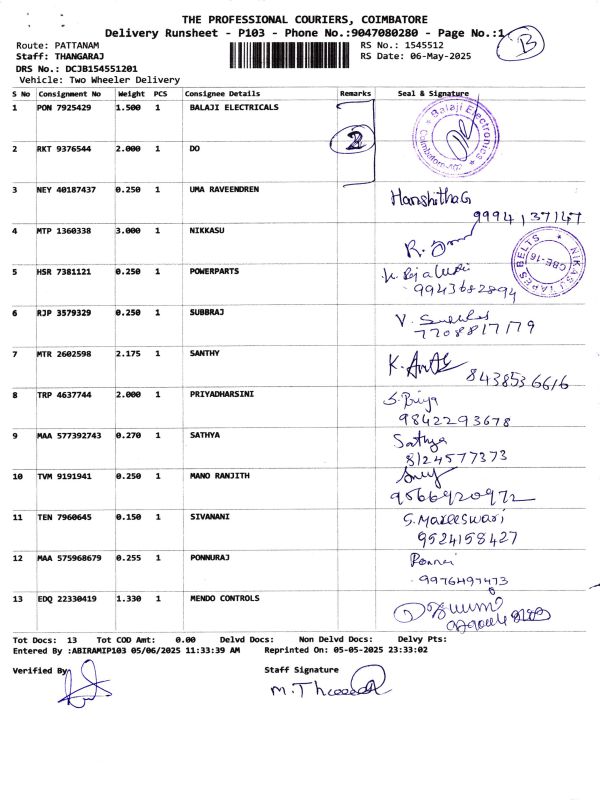 THE PROFESSIONAL COURIERS, COIMBATORE
Delivery Runsheet - P103 - Phone No.:9047080280 - Page No.:1
B
Route: PATTANAM RS No.: 1545512
Staff: THANGARAJ RS Date: 06-May-2025
DRS No.: DCJB154551201
Vehicle: Two Wheeler Delivery
S No Consignment No Weight PCS Consignee Details Remarks Seal & Signature
1 PON 7925429 1.500 1 BALAJI ELECTRICALS
Balaji Electronics
2 RKT 9376544 2.000 1 DO 2
3 NEY 40187437 0.250 1 UMA RAVEENDREN Harshitha G
9994137147
4 MTP 1360338 3.000 1 NIKKASU
NIKASU TAPES BELTS CBE-16
5 HSR 7381121 0.250 1 POWERPARTS
9943682894
6 RJP 3579329 0.250 1 SUBBRAJ V.
7708817179
7 MTR 2602598 2.175 1 SANTHY K.
8438536616
8 TRP 4637744 2.000 1 PRIYADHARSINI S. Priya
9842293678
9 MAA 577392743 0.270 1 SATHYA Sathya
8124577373
10 TVM 9191941 0.250 1 MANO RANJITH
9566920972
11 TEN 7960645 0.150 1 SIVANANI S. Mareeswari
9524158427
12 MAA 575968679 0.255 1 PONNURAJ
9976497473
13 EDQ 22330419 1.330 1 MENDO CONTROLS
Tot Docs: 13 Tot COD Amt: 0.00 Delvd Docs: Non Delvd Docs: Delvy Pts:
Entered By :ABIRAMIP103 05/06/2025 11:33:39 AM Reprinted On: 05-05-2025 23:33:02
Verified By Staff Signature